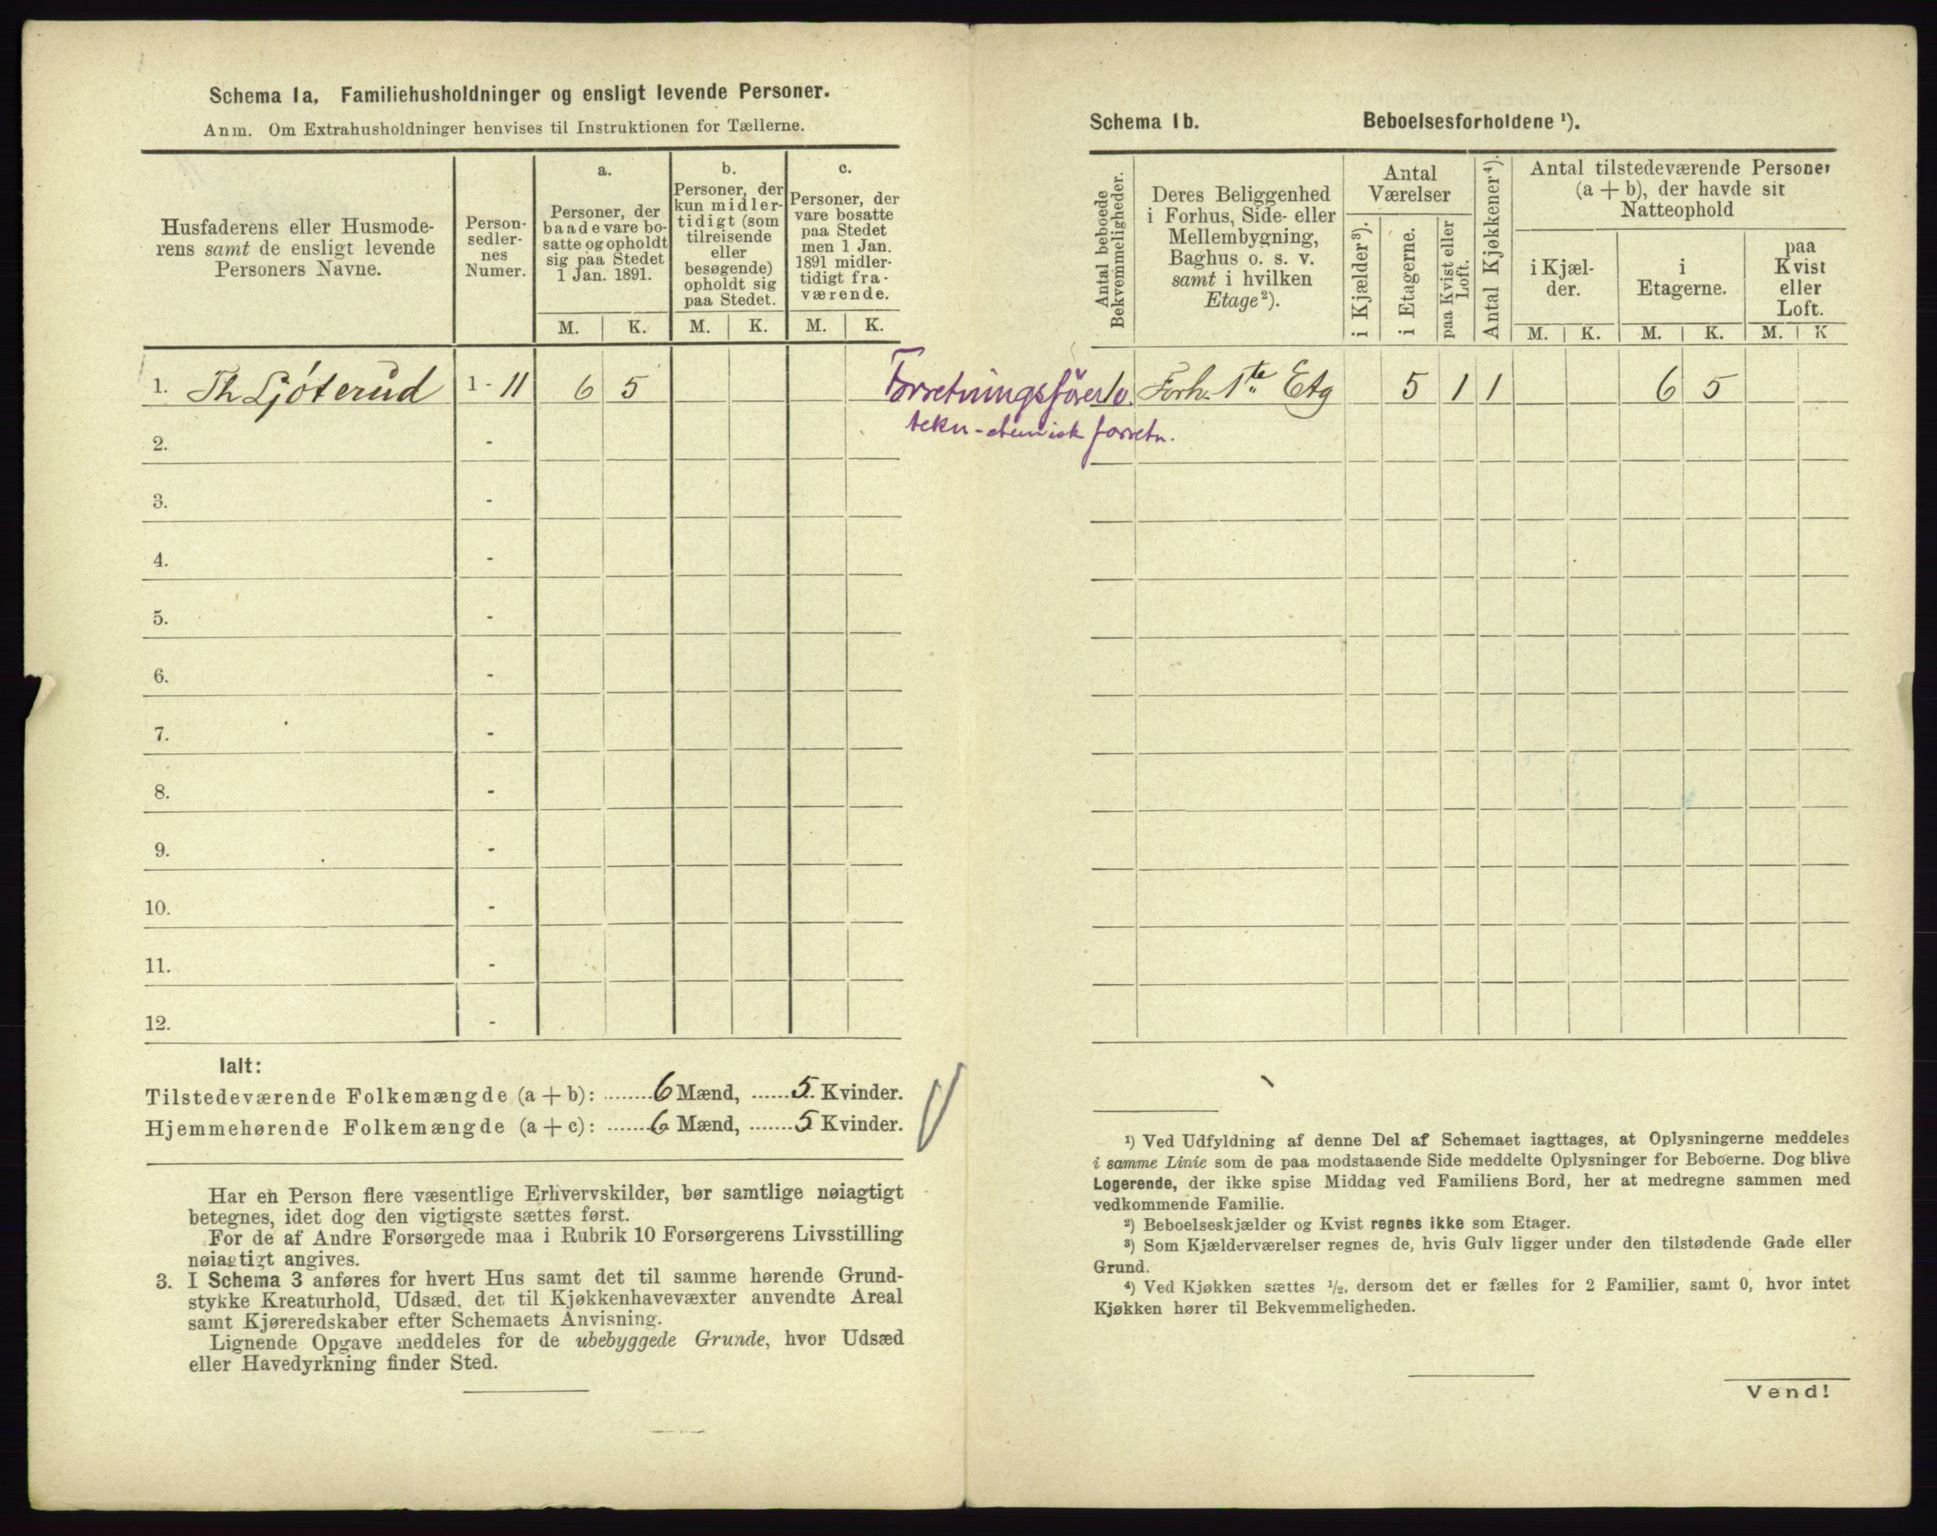 Schema 1a. Familiehusholdninger og ensligt levende Personer.
Anm. Om Extrahusholdninger henvises til Instruktionen for Tællerne.
Husfaderens eller Husmode-
rens samt de ensligt levende
Personers Navne.
Person-
sedler-
nes
Numer.
a.
Personer, der
baade vare bo-
satte og opholdt
sig paa Stedet
1 Jan. 1891.
b.
Personer, der
kun midler-
tidigt (som
tilreisende
eller
besøgende)
opholdt sig
paa Stedet.
c.
Personer, der
vare bosatte
paa Stedet
men 1 Jan.
1891 midler-
tidigt fra-
værende.
M. K. M. K. M. K.
1. Th Ljøterud 1 - 11 6 5
2. -
3. -
4. -
5. -
6. -
7. -
8. -
9. -
10. -
11. -
12. -
Ialt:
Tilstedeværende Folkemængde (a + b): ........ 6 Mænd, ...... 5. Kvinder.
Hjemmehørende Folkemængde (a + c): ....... 6 Mænd, ....... 5 Kvinder.
Har en Person flere væsentlige Erhvervskilder, bør samtlige nøiagtigt
betegnes, idet dog den vigtigste sættes først.
For de af Andre Forsørgede maa i Rubrik 10 Forsørgerens Livsstilling
nøiagtigt angives.
3. I Schema 3 anføres for hvert Hus samt det til samme hørende Grund-
stykke Kreaturhold, Udsæd, det til Kjøkkenhavevæxter anvendte Areal
samt Kjøreredskaber efter Schemaets Anvisning.
Lignende Opgave meddeles for de ubebyggede Grunde, hvor Udsæd
eller Havedyrkning finder Sted.
Schema 1b. Beboelsesforholdene ¹).
Antal beboede
Bekvemmeligheder.
Deres Beliggenhed
i Forhus, Side- eller
Mellembygning,
Baghus o. s. v.
samt i hvilken
Etage ²).
Antal
Værelser
i Kjælder ³).
i Etagerne.
paa Kvist eller
Loft.
Antal Kjøkkener ⁴).
Antal tilstedeværende Personer
(a + b), der havde sit
Natteophold
i Kjæl-
der.
i
Etagerne.
paa
Kvist
eller
Loft.
M. K. M. K. M. K
Forretningsfører
tekn-chemisk forretn.
Forh. 1ste Etg 5 1 1 6 5
¹) Ved Udfyldning af denne Del af Schemaet iagttages, at Oplysningerne meddeles
i samme Linie som de paa modstaaende Side meddelte Oplysninger for Beboerne. Dog blive
Logerende, der ikke spise Middag ved Familiens Bord, her at medregne sammen med
vedkommende Familie.
²) Beboelseskjælder og Kvist regnes ikke som Etager.
³) Som Kjælderværelser regnes de, hvis Gulv ligger under den tilstødende Gade eller
Grund.
⁴) Ved Kjøkken sættes ½, dersom det er fælles for 2 Familier, samt 0, hvor intet
Kjøkken hører til Bekvemmeligheden.
Vend!